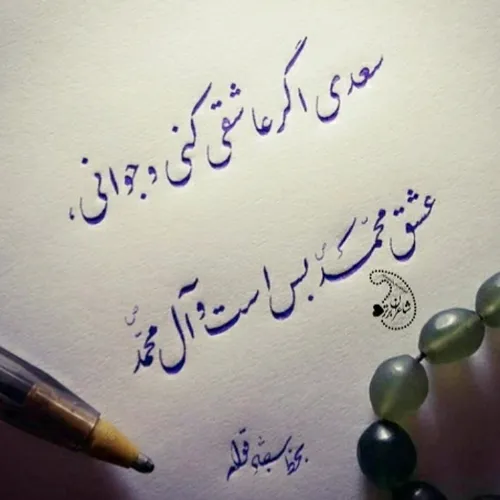 سعدی اگر عاشقی کنی و جوانی،
عشق محمدؐ بس است و آل محمدؐ
بخط